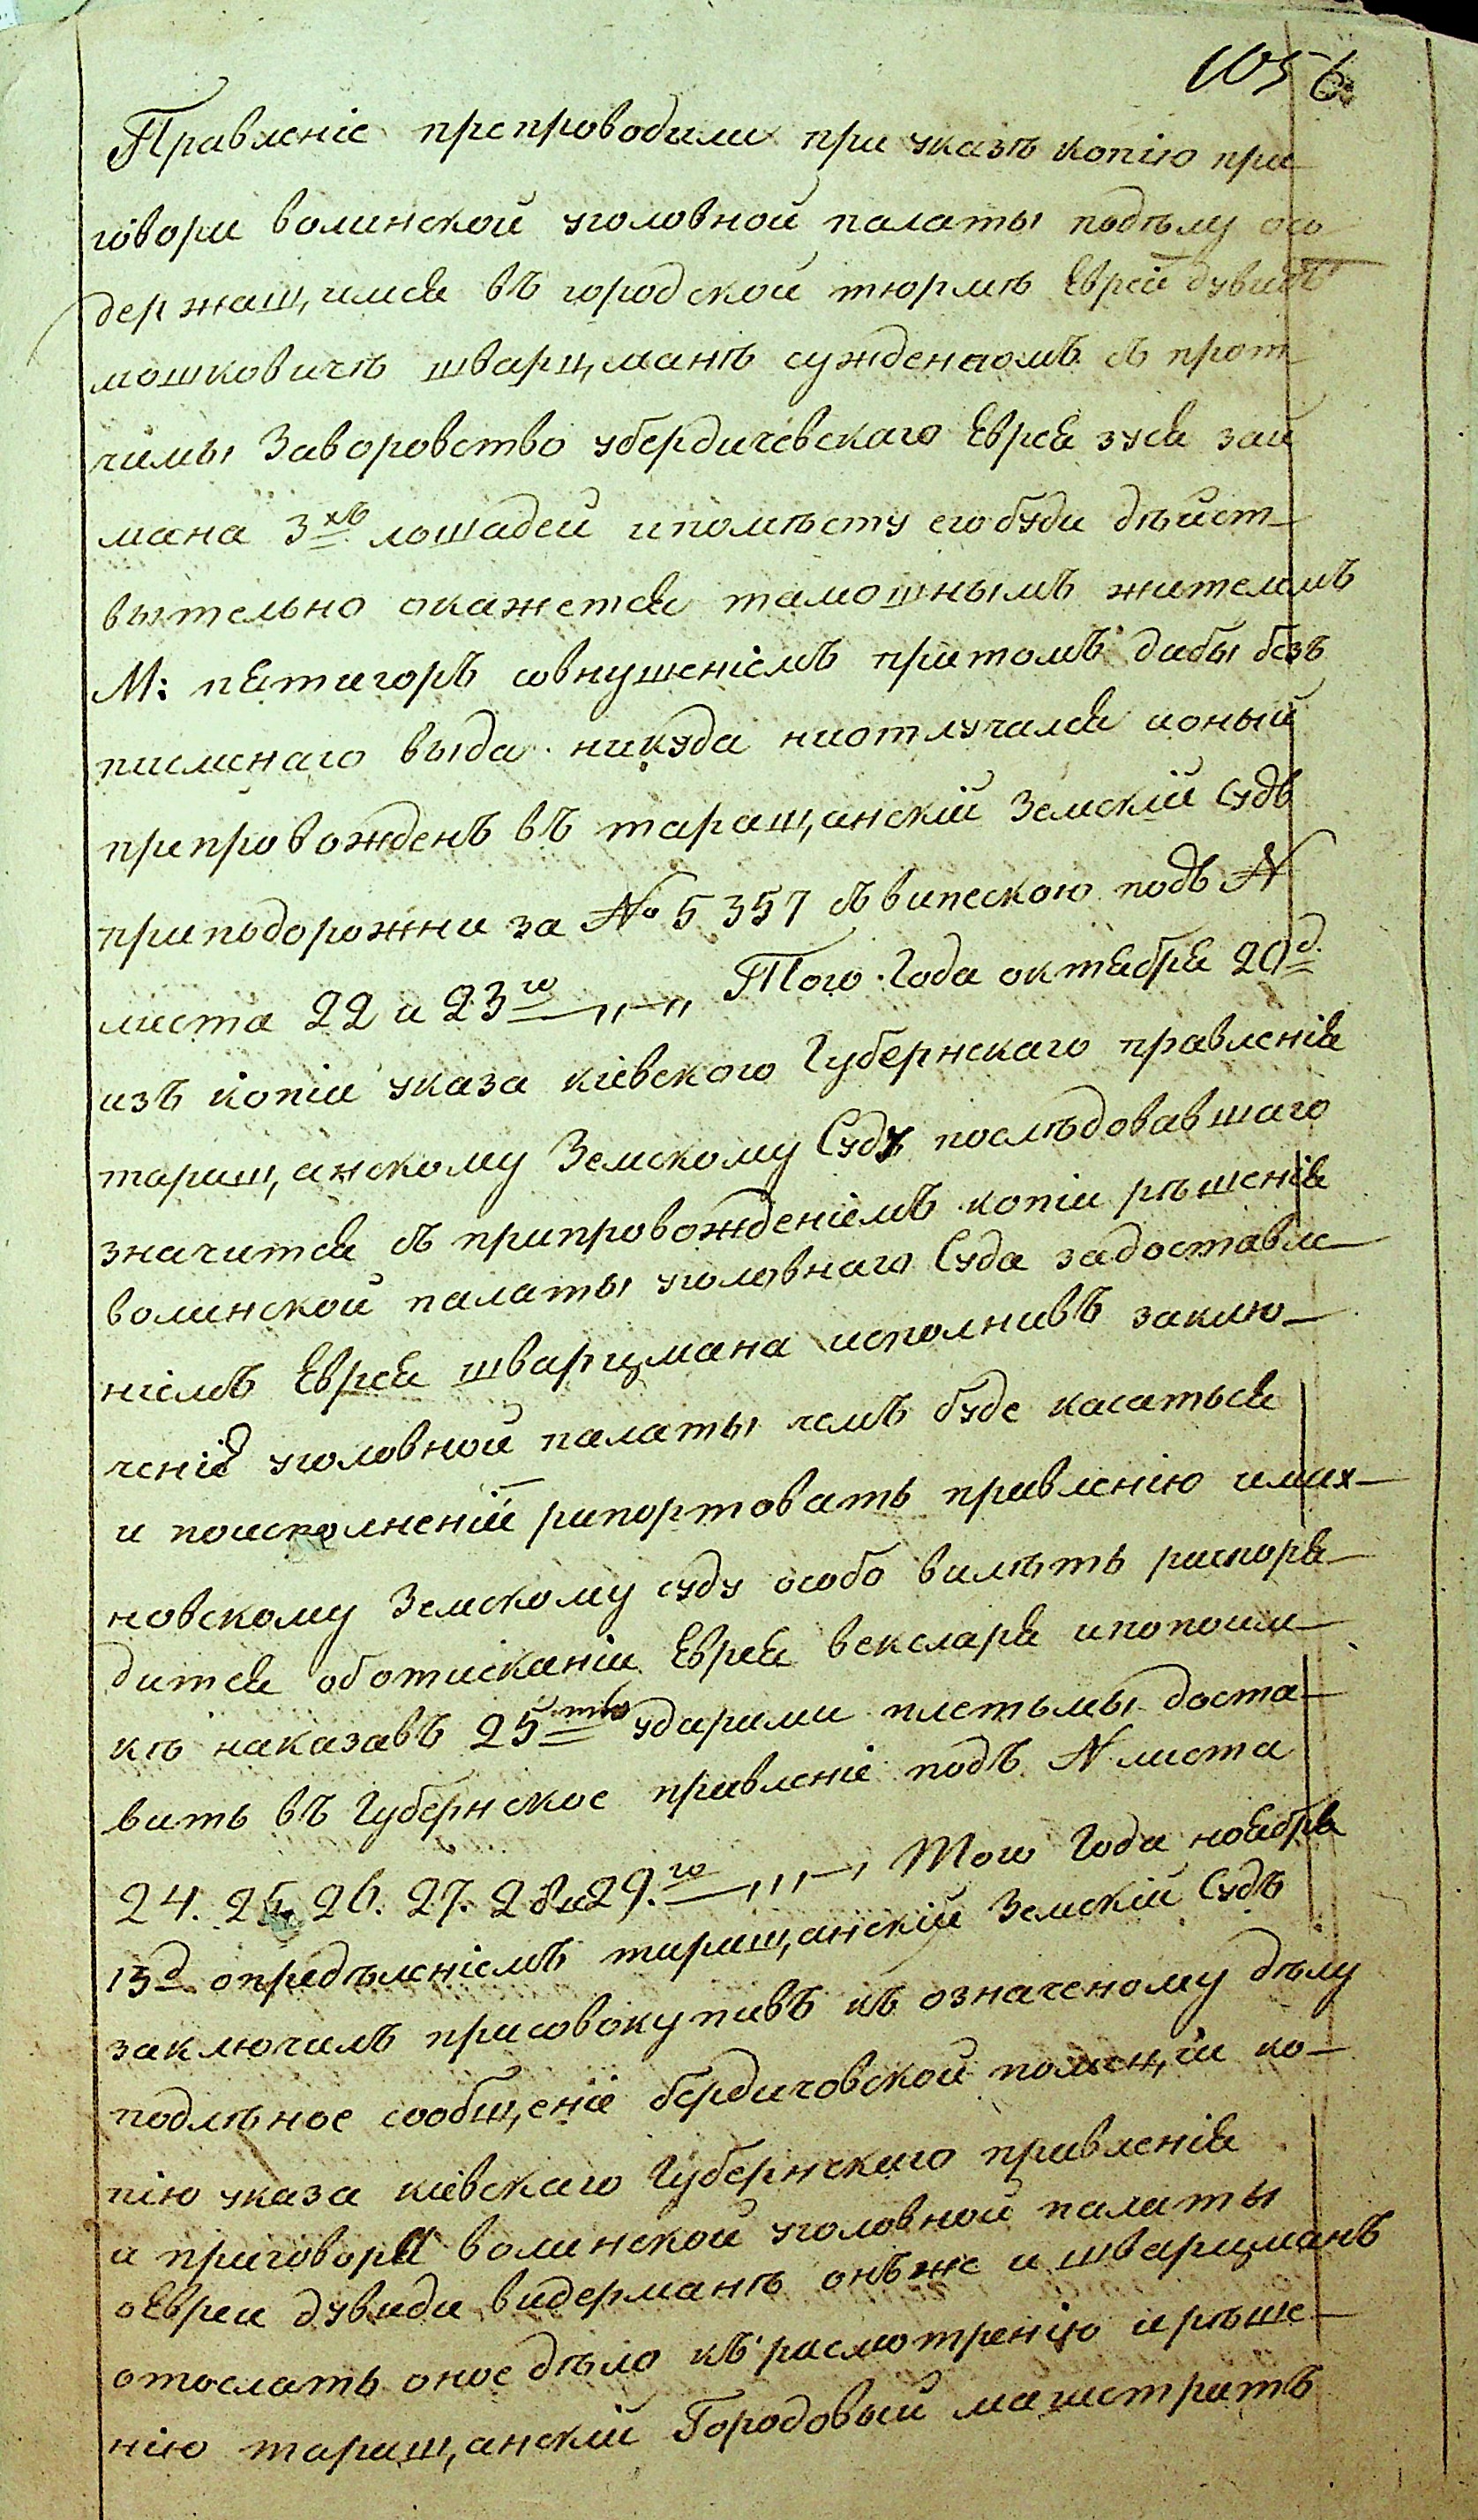 1056.
Правленіе препроводили при указѣ копію при
говори волинской уголовной палаты подѣлу осо
держащимся въ городской тюрмѣ Еврей дувидъ
мошковичѣ шварцманѣ сужденномъ съ прот
чимы Заворовство убердичевскаго Еврея зуся зай
мана 3хъ лошадей ипомѣсту его буди дѣйст
вытельно окажется тамошнымъ жителемъ
М: пятигоръ совнушеніемъ притомъ дабы безъ
писменаго выда никуда ниотлучался ионый
припровожденъ въ таращанскій Земскій Судъ
приподорожни за № 5357 съвипескою подъ N
листа 22 и 23го Того Года октября 20д.
изъ копіи указа кіевского Губернскаго правленія
таращанскому Земскому Суду послѣдовавшаго
значится съ припровожденіемъ копіи рѣшенія
волинской палаты уголовнаго Суда задоставле
ніемъ Еврея шварцмана исполнивъ заклю
ченіе уголовной палаты чемъ буде касаться
и поисполненій рипортовать правленію имах
новскому Земскому суду особо вилѣть распоря
дится оботисканіи Еврея векслара ипопоим
кѣ наказавъ 25тю ударами плетьмы доста
вить въ Губернское правленіе подъ N листа
24. 25. 26. 27. 28и29.го Того Года ноября
13д опридѣленіемъ таращанскій Земскій Судъ
заключилъ присовокупивъ къ означеному дѣлу
подлѣное сообщеніе бердичовской полиціи ко
пію указа кіевскаго Губернскаго правленія
и приговора волинской уголовной палаты
оЕвреи дувиди видерманѣ онъже и шварцманъ
отослать оное дѣло къ расмотренію ирѣше
нію таращанскій Городовый магистратъ